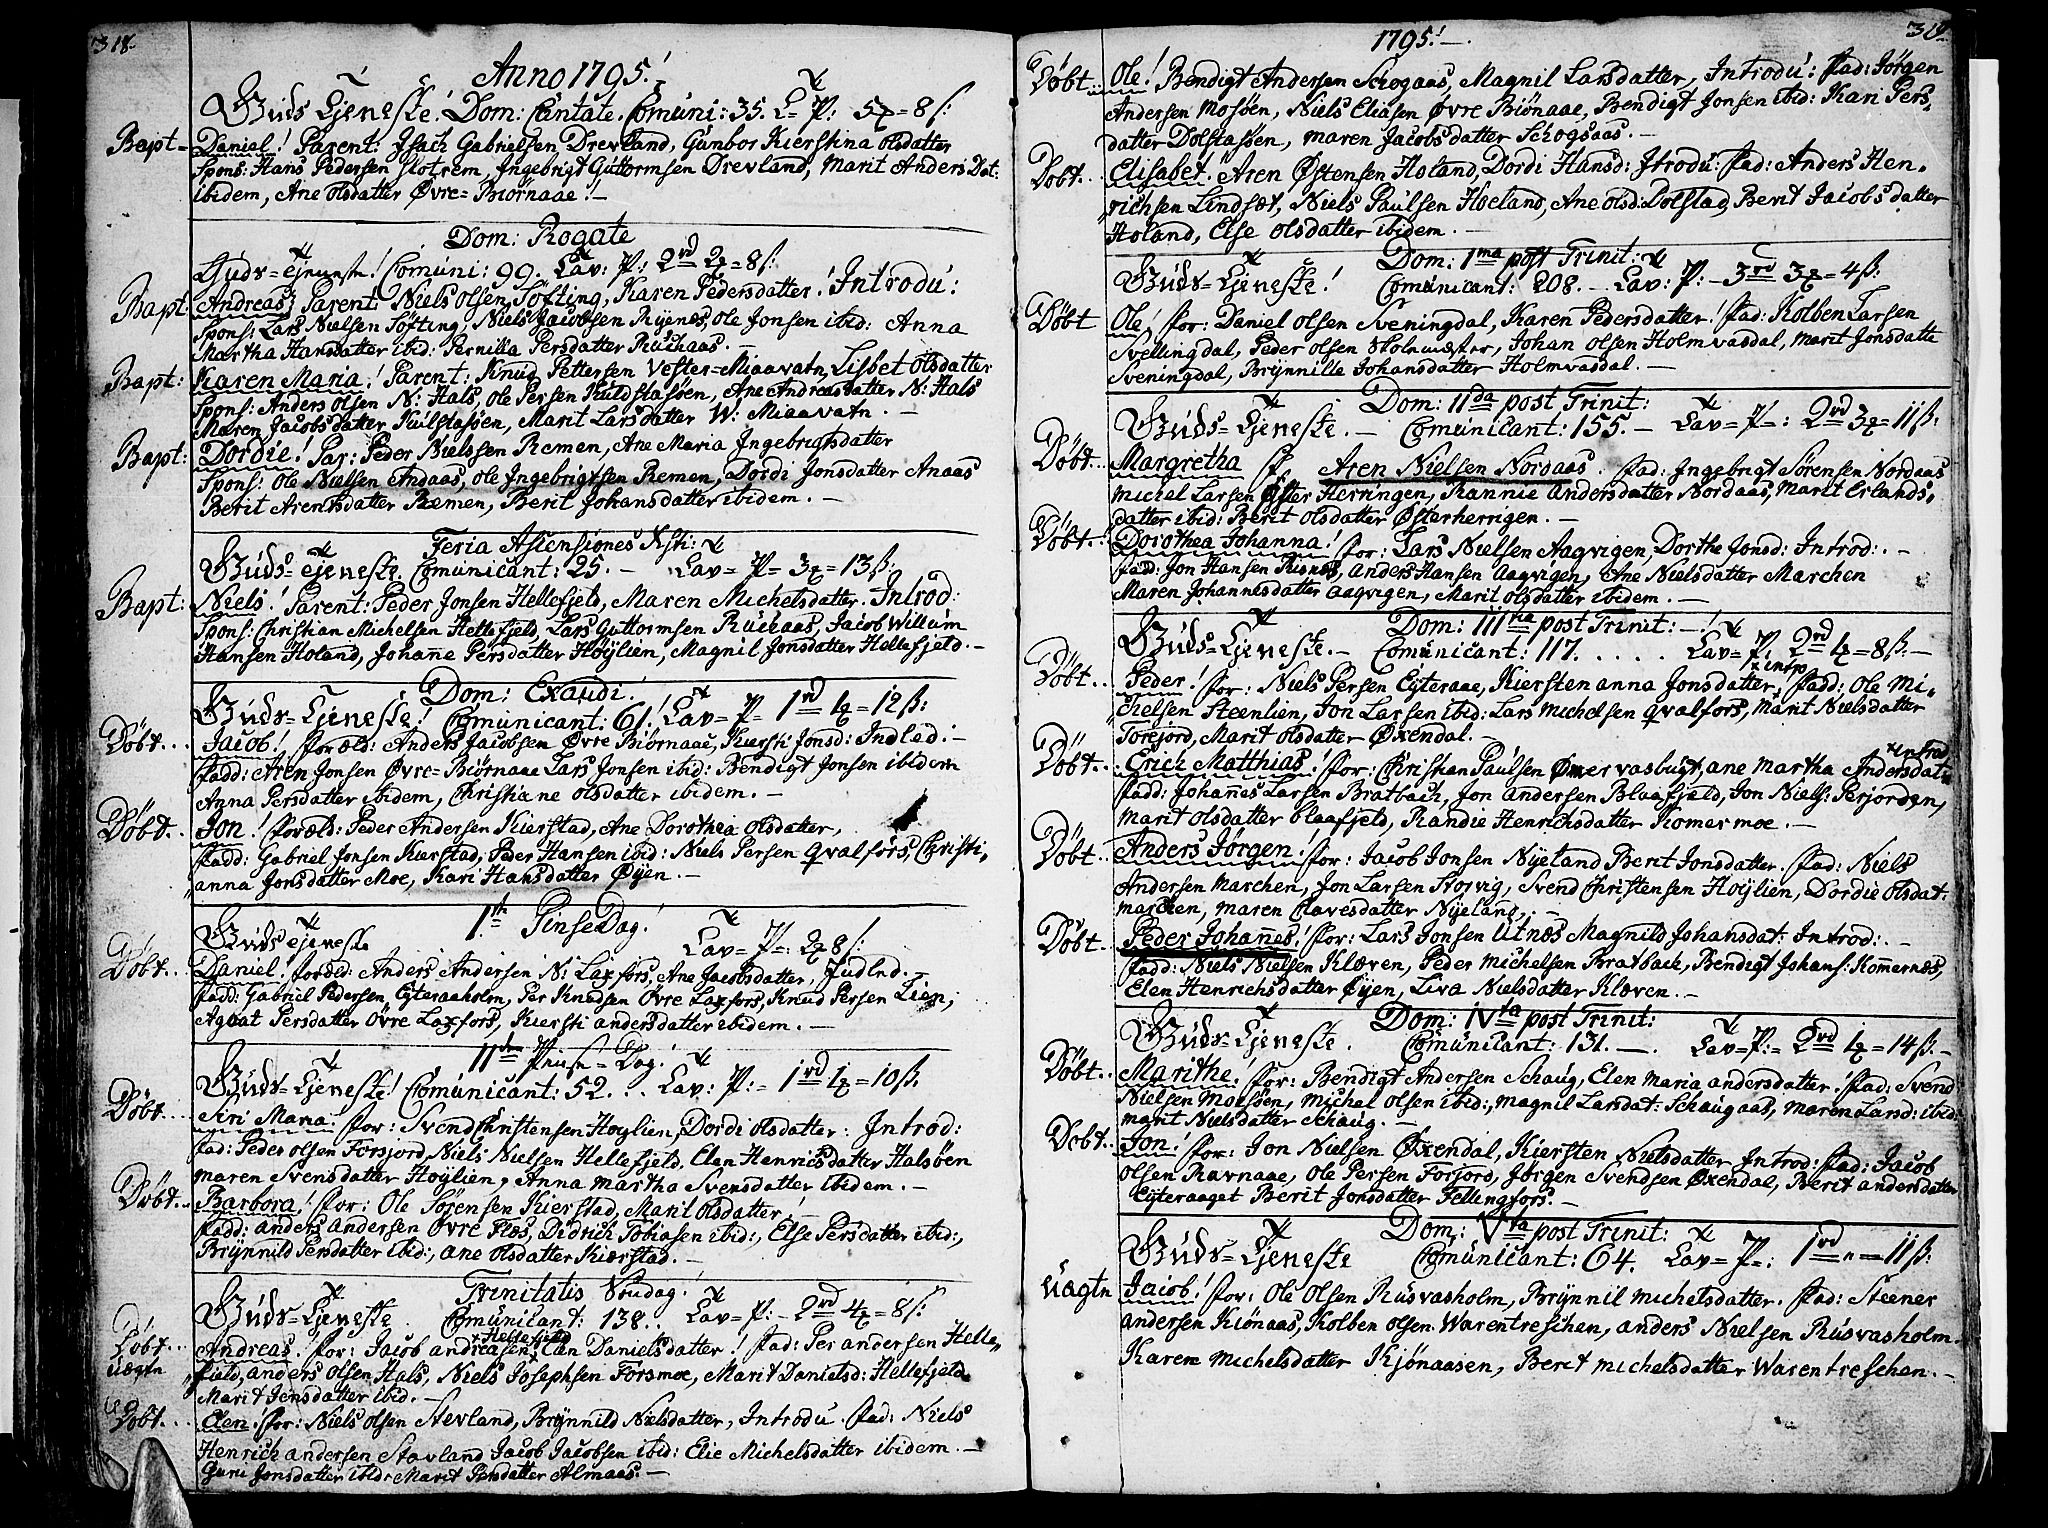 318.
Anno 1795!
Guds Tjeneste. Dom: Cantate. Comuni: 35. L= P: 5 = 8 ß:
Bapt= Daniel! Parent: Isach Gabrielsen Drevland, Gunbor Kierstina Olsdatter
Spons: Hans Pedersen Slotrem, Ingebrigt Guttormsen Drevland, Marit Anders Dat:
ibidem, Ane Olsdatter Øvre=Biørnaae! –
Dom: Rogate
Guds=Tjeneste! Comuni: 99. Lav: P: 2rd 2 = 8 ß:
Bapt: Andreas! Parent: Niels Olsen Söfting, Karen Pedersdatter! Introdu:
Spons: Lars Nielsen Söfting, Niels Jacobsen Ryenes, Ole Jonsen ibid: Anna
Martha Hansdatter ibid: Pernilla Persdatter Ruchaas. –
Bapt: Karen Maria! Parent: Knud Pettersen Vester=Miaavatn, Lisbet Olsdatter
Spons: Anders Olsen N: Hals, Ole Persen Kuldstasöen, Ane Andreasdatter N: Hals
Maren Jacobsdatter Kulstasöen, Marit Larsdatter W: Miaavatn. –
Bapt: Dordie! Par: Peder Nielssen Remen, Ane Maria Ingebrigtsdatter
Spons: Ole Nielsen Andaas, Ole Ingebrigtsen Remen, Dordi Jonsdatter Anaas
Berit Arentsdatter Remen, Berit Johansdatter ibidem. –
Feria Ascensiones Xsti:
Guds=Tjeneste. Comunicant: 25. – Lav= P= 3 = 13 ß:
Bapt: Niels! Parent: Peder Jonsen Hellefjeld, Maren Michelsdatter. Introd:
Spons: Christian Michelsen Hellefjeld, Lars Guttormsen Ruchaas, Jacob Willum
Hansen Holand, Johane Persdatter Höylien, Magnil Jonsdatter Hellefjeld. –
Dom: Exaudi!
Guds=Tjeneste! Comunicant: 61! Lav= P= 1rd 1 = 12 ß:
Döbt... Jacob! Foræld: Anders Jacobsen Øvre Biørnaae, Kiersti Jonsd: Indled: –
Fadd: Aren Jonsen Øvre=Biørnaae Lars Jonsen ibid: Bendigt Jonsen ibidem
Anna Persdatter ibidem, Christiane Olsdatter ibidem. –
Döbt. Jon! Foræld: Peder Andersen Kierstad, Ane Dorothea Olsdatter,
Fadd: Gabriel Jonsen Kierstad, Peder Hansen ibid: Niels Persen Qvalfors, Christi,
anna Jonsdatter Moe, Kari Hansdatter Øyen. –
1ste PinseDag!
Guds Tjeneste Lav= P= 2 8 ß:
Döbt... Daniel! Foræld: Anders Andersen N: Laxfors, Ane Jacobsdatter, Indled. –
Fadd: Gabriel Pedersen, Eyteraaholm, Per Knudsen Øvre Laxfors, Knud Persen Lien,
Agaat Persdatter Øvre Laxfors, Kiersti Andersdatter ibidem. –
IIden Pinse=Dag!
Guds=Tjeneste! Comunicant: 52... Lav: P:= 1rd 1 = 10 ß.
Döbt... Siri Maria: For: Svend Christensen Höylien, Dordi Olsdatter: Introd:
Fad: Peder Olsen Forsjord, Niels Nielsen Hellefjeld, Elen Henricsdatter Halsöen
Maren Svensdatter Höylien, Anna Martha Svensdatter ibidem. –
Döbt... Barbora! For: Ole Sörensen Kierstad, Marit Olsdatter! –
Fadd: Anders Andersen Øvre Flæs, Didrich Tobiasen ibid:, Else Persdatter ibid:,
Brynnild Persdatter ibid:, Ane Olsdatter Kierstad. –
Trinitatis Söndag!
Guds=Tjeneste. Comunicant: 138.. Lav= P: – 2rd 4 = 8 ß:
Döbt... Andreas! For: Jacob Andreasen, Hellefjeld Elen Danielsdatter! Fad: Per Andersen Helle,
uægtn fjeld, Anders Olsen Hals, Niels Josephsen Forsmoe, Marit Danielsd: Hellefjeld
Marit Jonsdatter ibid. –
Döbt... Elen. For: Niels Olsen Stevland, Brynnild Nielsdatter, Introdu. Fad: Niels
Henrich Andersen Stavland, Jacob Jacobsen ibid: Elie Michelsdatter ibidem. –
Guru Jonsdatter ibid: Marit Persdatter Almaas. –
1795! –
319.
Döbt... Ole! Bendigt Andersen Schogaas, Magnil Larsdatter, Introdu: Fad: Jörgen
Andersen Mosöen, Niels Eliasen Øvre Biönaae, Bendigt Jonsen ibid: Kari Pers,
datter Dolstasöen, Maren Jacobsdatter Schogsaas. –
Döbt... Elisabet! Aren Østensen Holand, Dordi Hansd: Itrodu: Fad: Anders Hen,
richsen Lindsæt, Niels Paulsen Hoeland, Ane Olsd: Dolstad, Berit Jacobsdatter
Holand, Else Olsdatter ibidem. –
Dom: 1ma post Trinit:
Guds=Tjeneste! Comunicant: 208. – Lav: P: – 3rd 3 = 4 ß:
Döbt Ole! For: Daniel Olsen Sveningdal, Karen Pedersdatter! Fad: Kolben Larsen
Svellingdal, Peder Olsen Skolemester, Johan Olsen Holmvasdal, Marit Jonsdatte
Sveningdal, Brynnille Johansdatter Holmvasdal. –
Dom: IIda post Trinit:
Guds=Tjeneste. – Comunicant: 155. – Lav= P= : 2rd 3 = 11 ß:
Döbt... Margretha F, Aren Nielsen Nordaas. Fad: Ingebrigt Sörensen Nordaas
Michel Larsen Øster Herringen, Rannie Andersdatter Nordaas, Marit Erlands,
datter ibid: Berit Olsdatter Østerherrigen. –
Döbt.. Dorothea Johanna! For: Lars Nielsen Aagvigen, Dorthe Jonsd: Introd:. –
Fad: Jon Hansen Risnæs, Anders Hansen Aagvigen, Ane Nielsdatter Marchen
Maren Johannesdatter Aagvigen, Marit Olsdatter ibidem. –
Dom: IIItia post Trinit: –!
Guds=Tjeneste. – Comunicant: 117..... Lav= P: 2rd 4 = 8 ß: –
Döbt.. Peder! For: Niels Persen Eyteraae, Kiersten Anna Jonsdatter, introd Fadd: Ole Mi,
chelsen Steenlien, Jon Larsen ibid: Lars Michelsen Qvalfors, Marit Nielsdatter
Torejord, Marit Olsdatter Øxendal. –
Döbt.. Erich Matthias! For: Christian Paulsen Ømervasbugt, Ane Martha Andersdat: Introd
Fadd: Johannes Larsen Bratbach, Jon Andersen Blaafjeld, Jon Niels: Perjorden,
Marit Olsdatter Blaafjeld, Randie Henrichsdatter Komermoe. –
Döbt.. Anders Jörgen! For: Jacob Jonsen Nyeland Berit Jonsdatter. Fad: Niels
Andersen Marchen, Jon Larsen Storvig, Svend Christensen Höylien, Dordie Olsdat:
Marchen, Maren Clavesdatter Nyeland, –
Döbt. Peder Johannes! For: Lars Jonsen Utnæs Magnild Johansdat: Introd:. –
Fadd: Niels Nielsen Kloven, Peder Michelsen Bratbach, Bendigt Johans: Komernæs,
Elen Henrichsdatter Øyen, Liva Nielsdatter Kloven. –
Dom: IVta post Trinit:
Guds=Tjeneste. Comunicant: 131. – Lav=P:= 2rd 1 = 14 ß. –
Döbt.. Marithe! For: Bendigt Andersen Schaug, Elen Maria Andersdatter! Fad: Svend
Nielsen Mosöen, Michel Olsen ibid:, Magnil Larsdat: Schaugaas, Maren Larsd: ibid:
Marit Nielsdatter Schaug. –
Döbt.. Jon! For: Jon Nielsen Øxendal, Kiersten Nielsdatter Introd: Fad: Jacob
Olsen Ravnaae, Ole Persen Forjord, Jörgen Svendsen Øxendal, Berit Andersdatter
Eyteraaget Berit Jonsdatter Fellingfors. –
Dom: Vta post Trinit:
Guds=Tjeneste Comunicant: 64. Lav= P=: 1rd „ = 11 ß:
uægtn Jacob! For: Ole Olsen Rusvasholm, Brynnil Michelsdatter. Fad: Steener
Andersen Kiönaas, Kolben Olsen Warentreschen, Anders Nielsen Rusvasholm.
Karen Michelsdatter Kjönaasen, Berit Michelsdatter Warentreschen. –